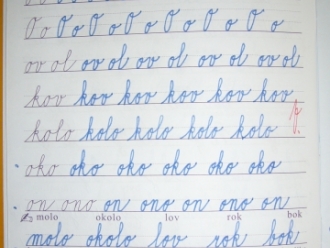 O o O o O o O o O o O o
ov ol ov ol ov ol ov ol ov ol
kov kov kov kov kov kov
kolo kolo kolo kolo kolo
oko oko oko oko oko oko
on ono on ono on ono on
molo okolo lov rok bok
molo okolo lov rok bok